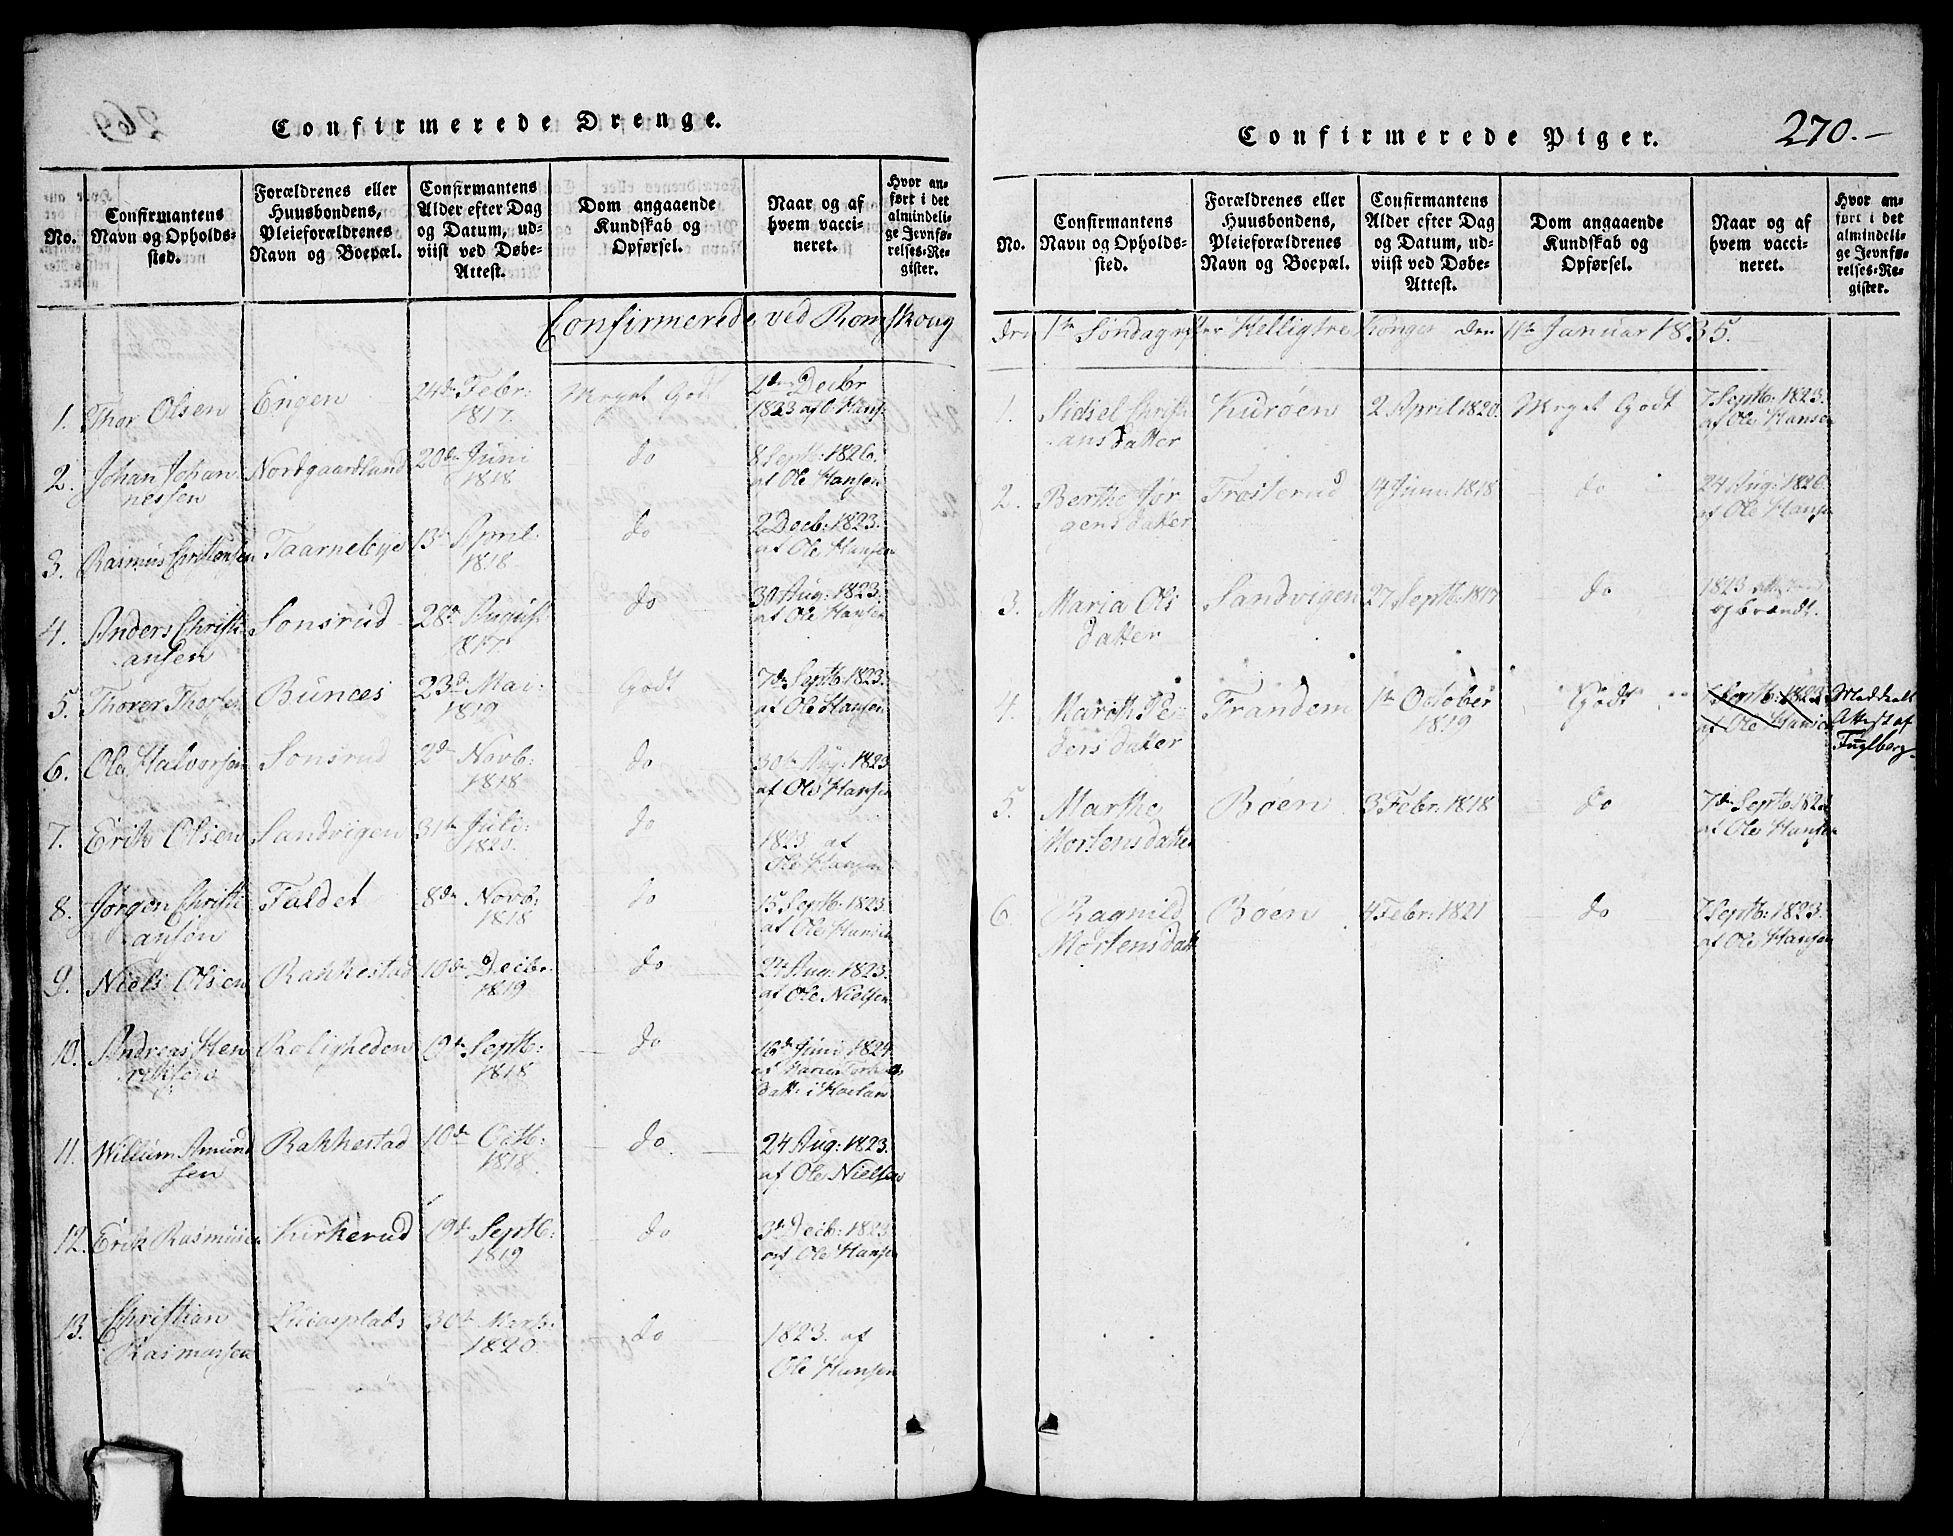 Confirmerede Drenge.
No.
Confirmantens
Navn og Opholds-
sted.
Forældrenes eller
Huusbondens,
Pleieforældrenes
Navn og Boepæl.
Confirmantens
Alder efter Dag
og Datum, ud-
viist ved Døbe-
Attest.
Dom angaaende
Kundskab og
Opførsel.
Naar og af
hvem vacci-
neret.
Hvor an-
ført i det
almindeli-
ge Jevnfø-
relses-Re-
gister.
Confirmerede ved Romskoug
1. Thor Olsen Engen 24de Febr: Meget Godt 2den Decbr
1817. 1823 af O. Hans
2. Johan Johan Nordgaardslund 20de Juni do 8 Septb: 1826.
nesen 1818 af Ole Hansen
3. Rasmus Christensen Taarnebye 13de April do 2 Decb: 1823.
1818 af Ole Hansen
4. Anders Christi Sonsrud 28de August do 30 Aug: 1823.
ansen 1817. af Ole Hansen
5. Thorer Thorsen Bunees 23de Mai Godt 7de Septb: 1823.
1819 af Ole Hansen
6. Ole Halvorsen Sonsrud 2de Novb: do 30te Aug: 1823
1818 af Ole Hansen
7. Erik Olsen Sandvigen 31te Juli do 1823 af
1820. Ole Hansen
8. Jørgen Christi Faldet 8de Novb: do 15 Septb: 1823.
ansen 1818 af Ole Hansen
9. Niels Olsen Rakkestad 10de Decbr. do 24 Aug: 1823.
1819 af Ole Nielsen
10. Andreas Hen Roligheden 19de Septb: do 16de Juni 1824
riksen 1818 af
datt: i Høland
11. Willum Amund Rakkestad 10de Octb: do 24 Aug: 1823.
sen 1818. af Ole Nielsen
12. Erik Rasmusen Kirkerud 19de Septb: do 3de Decb: 1823
1819 af Ole Hansen
13. Christian Lucasplads 30te Marts do 1823. af
Rasmussen 1820. Ole Hansen
Confirmerede Piger. 270.-
No.
Confirmantens
Navn og Opholds-
sted.
Forældrenes eller
Huusbondens,
Pleieforældrenes
Navn og Boepæl.
Confirmantens
Alder efter Dag
og Datum, ud-
viist ved Døbe-
Attest.
Dom angaaende
Kundskab og
Opførsel.
Naar og af
hvem vacci-
neret.
Hvor an-
ført i det
almindeli-
ge Jevnfø-
relses-Re-
gister.
den 1te Søndag efter Helligtre Konger den 11te Januar 1835.
1. Sidsel Christi Kurøen 2 April 1820. Meget Godt 7 Septb: 1823.
ansdatter af Ole Hansen
2. Berthe Jør Trosterud 14 Juni 1818 do 24 Aug: 1826.
gensdatter af Ole Hansen
3. Maria Ols Sandvigen 27 Septb: 1817 do 1823
datter opbrændt.
4. Marth Pe Trandem 1te October Godt 7 Septb: 1823 Meddeelt
dersdatter 1819 af Ole Hansen Attest af
Fuglberg.
5. Marthe Bøen 3 Febr: 1818 do 7de Septb: 1823
Mortensdatter af Ole Hansen
6. Ragnild Bøen 4 Febr: 1821 do 7 Septb: 1823.
Mortensdatt af Ole Hansen